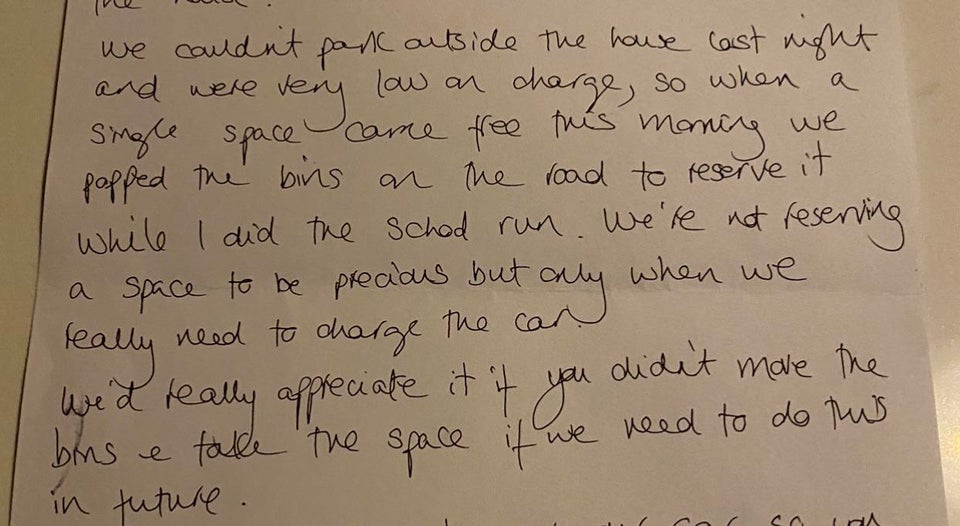 the road.
we couldn't park outside the house last night
and were very low on charge, so when a
single space came free this morning we
popped the bins on the road to reserve it
while I did the school run. We're not reserving
a space to be precious but only when we
really need to charge the car.
We'd really appreciate it if you didn't move the
bins & take the space if we need to do this
in future.
so you